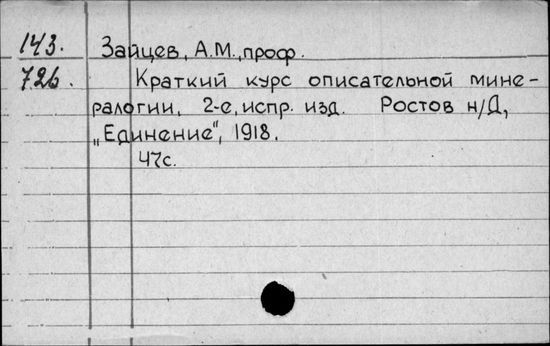 143. Зайцев, А.М., проф.
726. Краткий курс описательной мине-
ралогии, 2-е, испр. изд. Ростов н/Д,
„Единение", 1918.
47с.